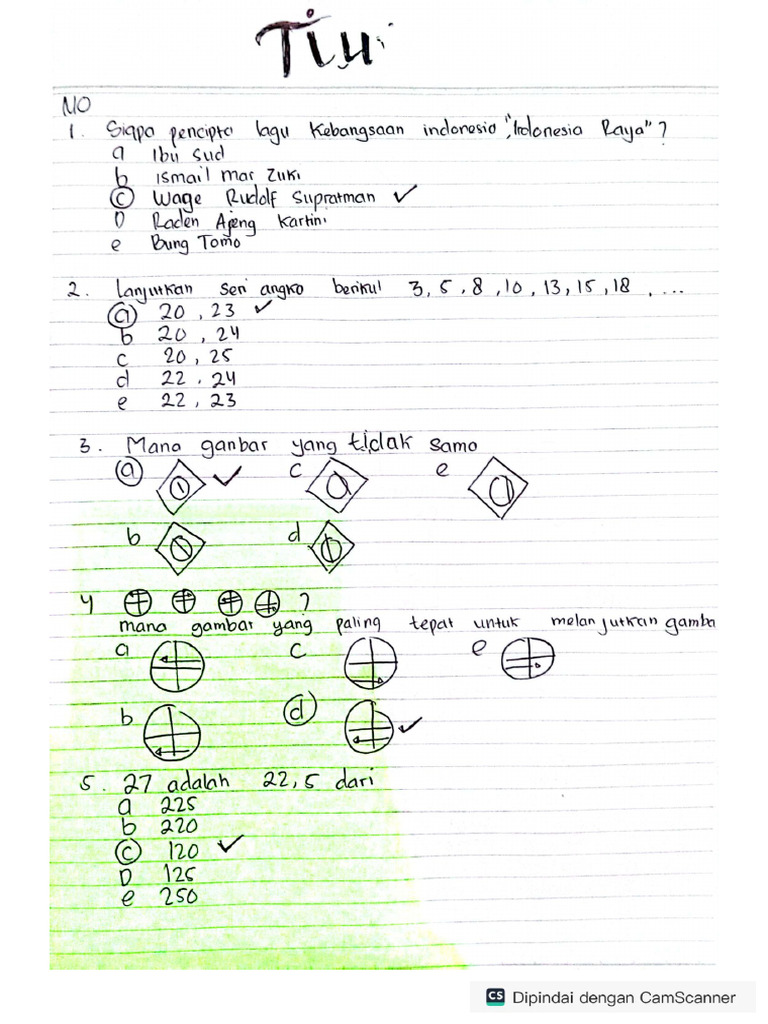 TIU
NO
1. Siapa pencipta lagu Kebangsaan indonesia, "Indonesia Raya"?
a Ibu Sud
b Ismail mar Zuki
c Wage Rudolf Supratman ✓
D Raden Ajeng Kartini
e Bung Tomo
2. Lanjutkan seri angka berikut 3, 5, 8, 10, 13, 15, 18, ...
a 20, 23 ✓
b 20, 24
c 20, 25
d 22, 24
e 22, 23
3. Mana ganbar yang tidak sama
a ✓ c e
b d
4 ?
mana gambar yang paling tepat untuk melanjutkan gamba
a c e
b d ✓
5. 27 adalah 22,5 dari
a 225
b 220
c 120 ✓
D 125
e 250
CS Dipindai dengan CamScanner